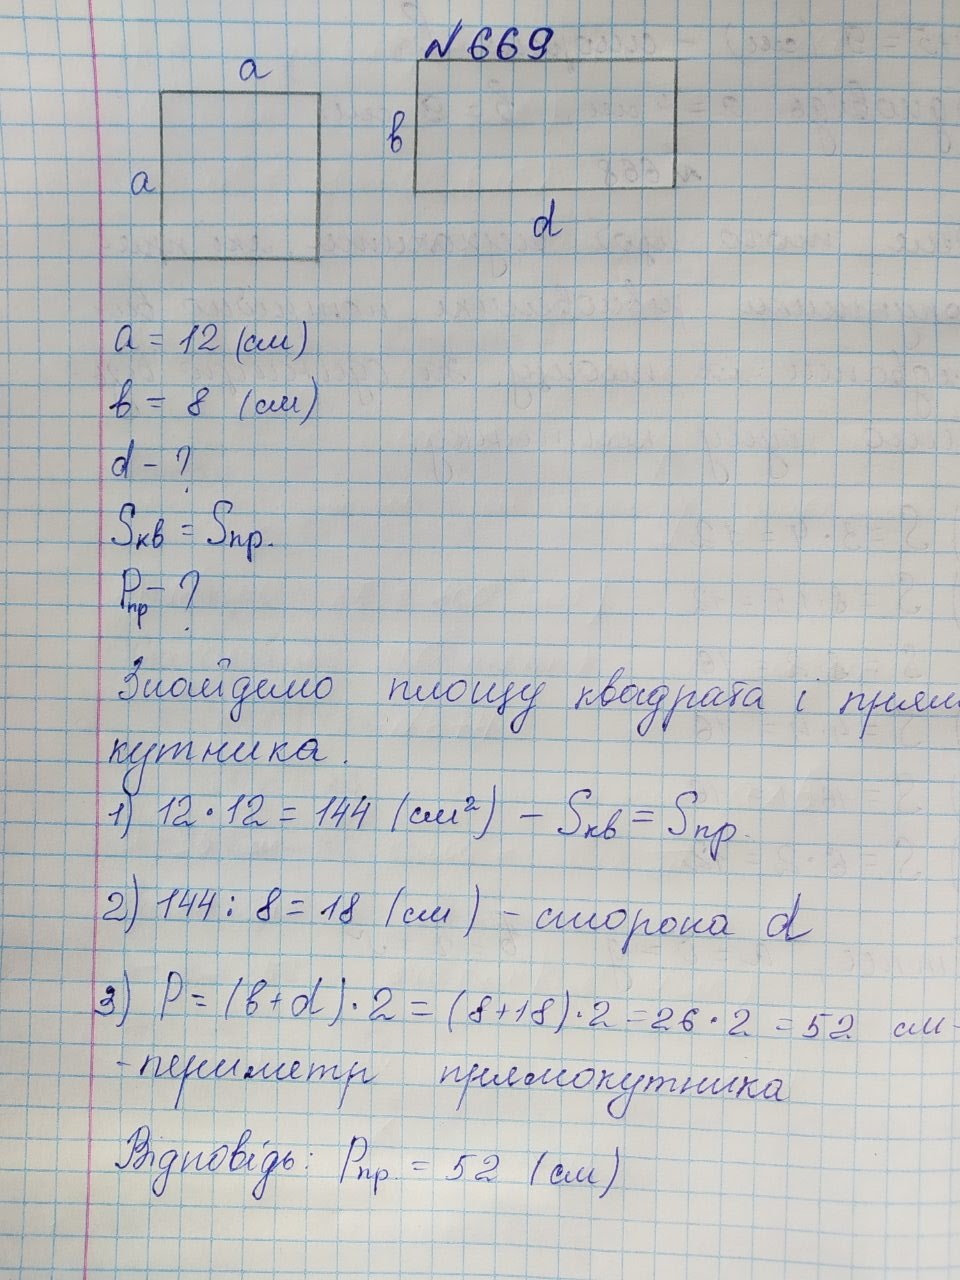 №669
a
a
в
d
a = 12 (см)
в = 8 (см)
d - ?
Sкв = Sпр.
Pпр - ?
Знайдемо площу квадрата і прямо
кутника.
1) 12 · 12 = 144 (см²) - Sкв = Sпр.
2) 144 : 8 = 18 (см) - сторона d
3) P = (в + d) · 2 = (8+18) · 2 = 26 · 2 = 52 см -
- периметр прямокутника
Відповідь: Pпр. = 52 (см)